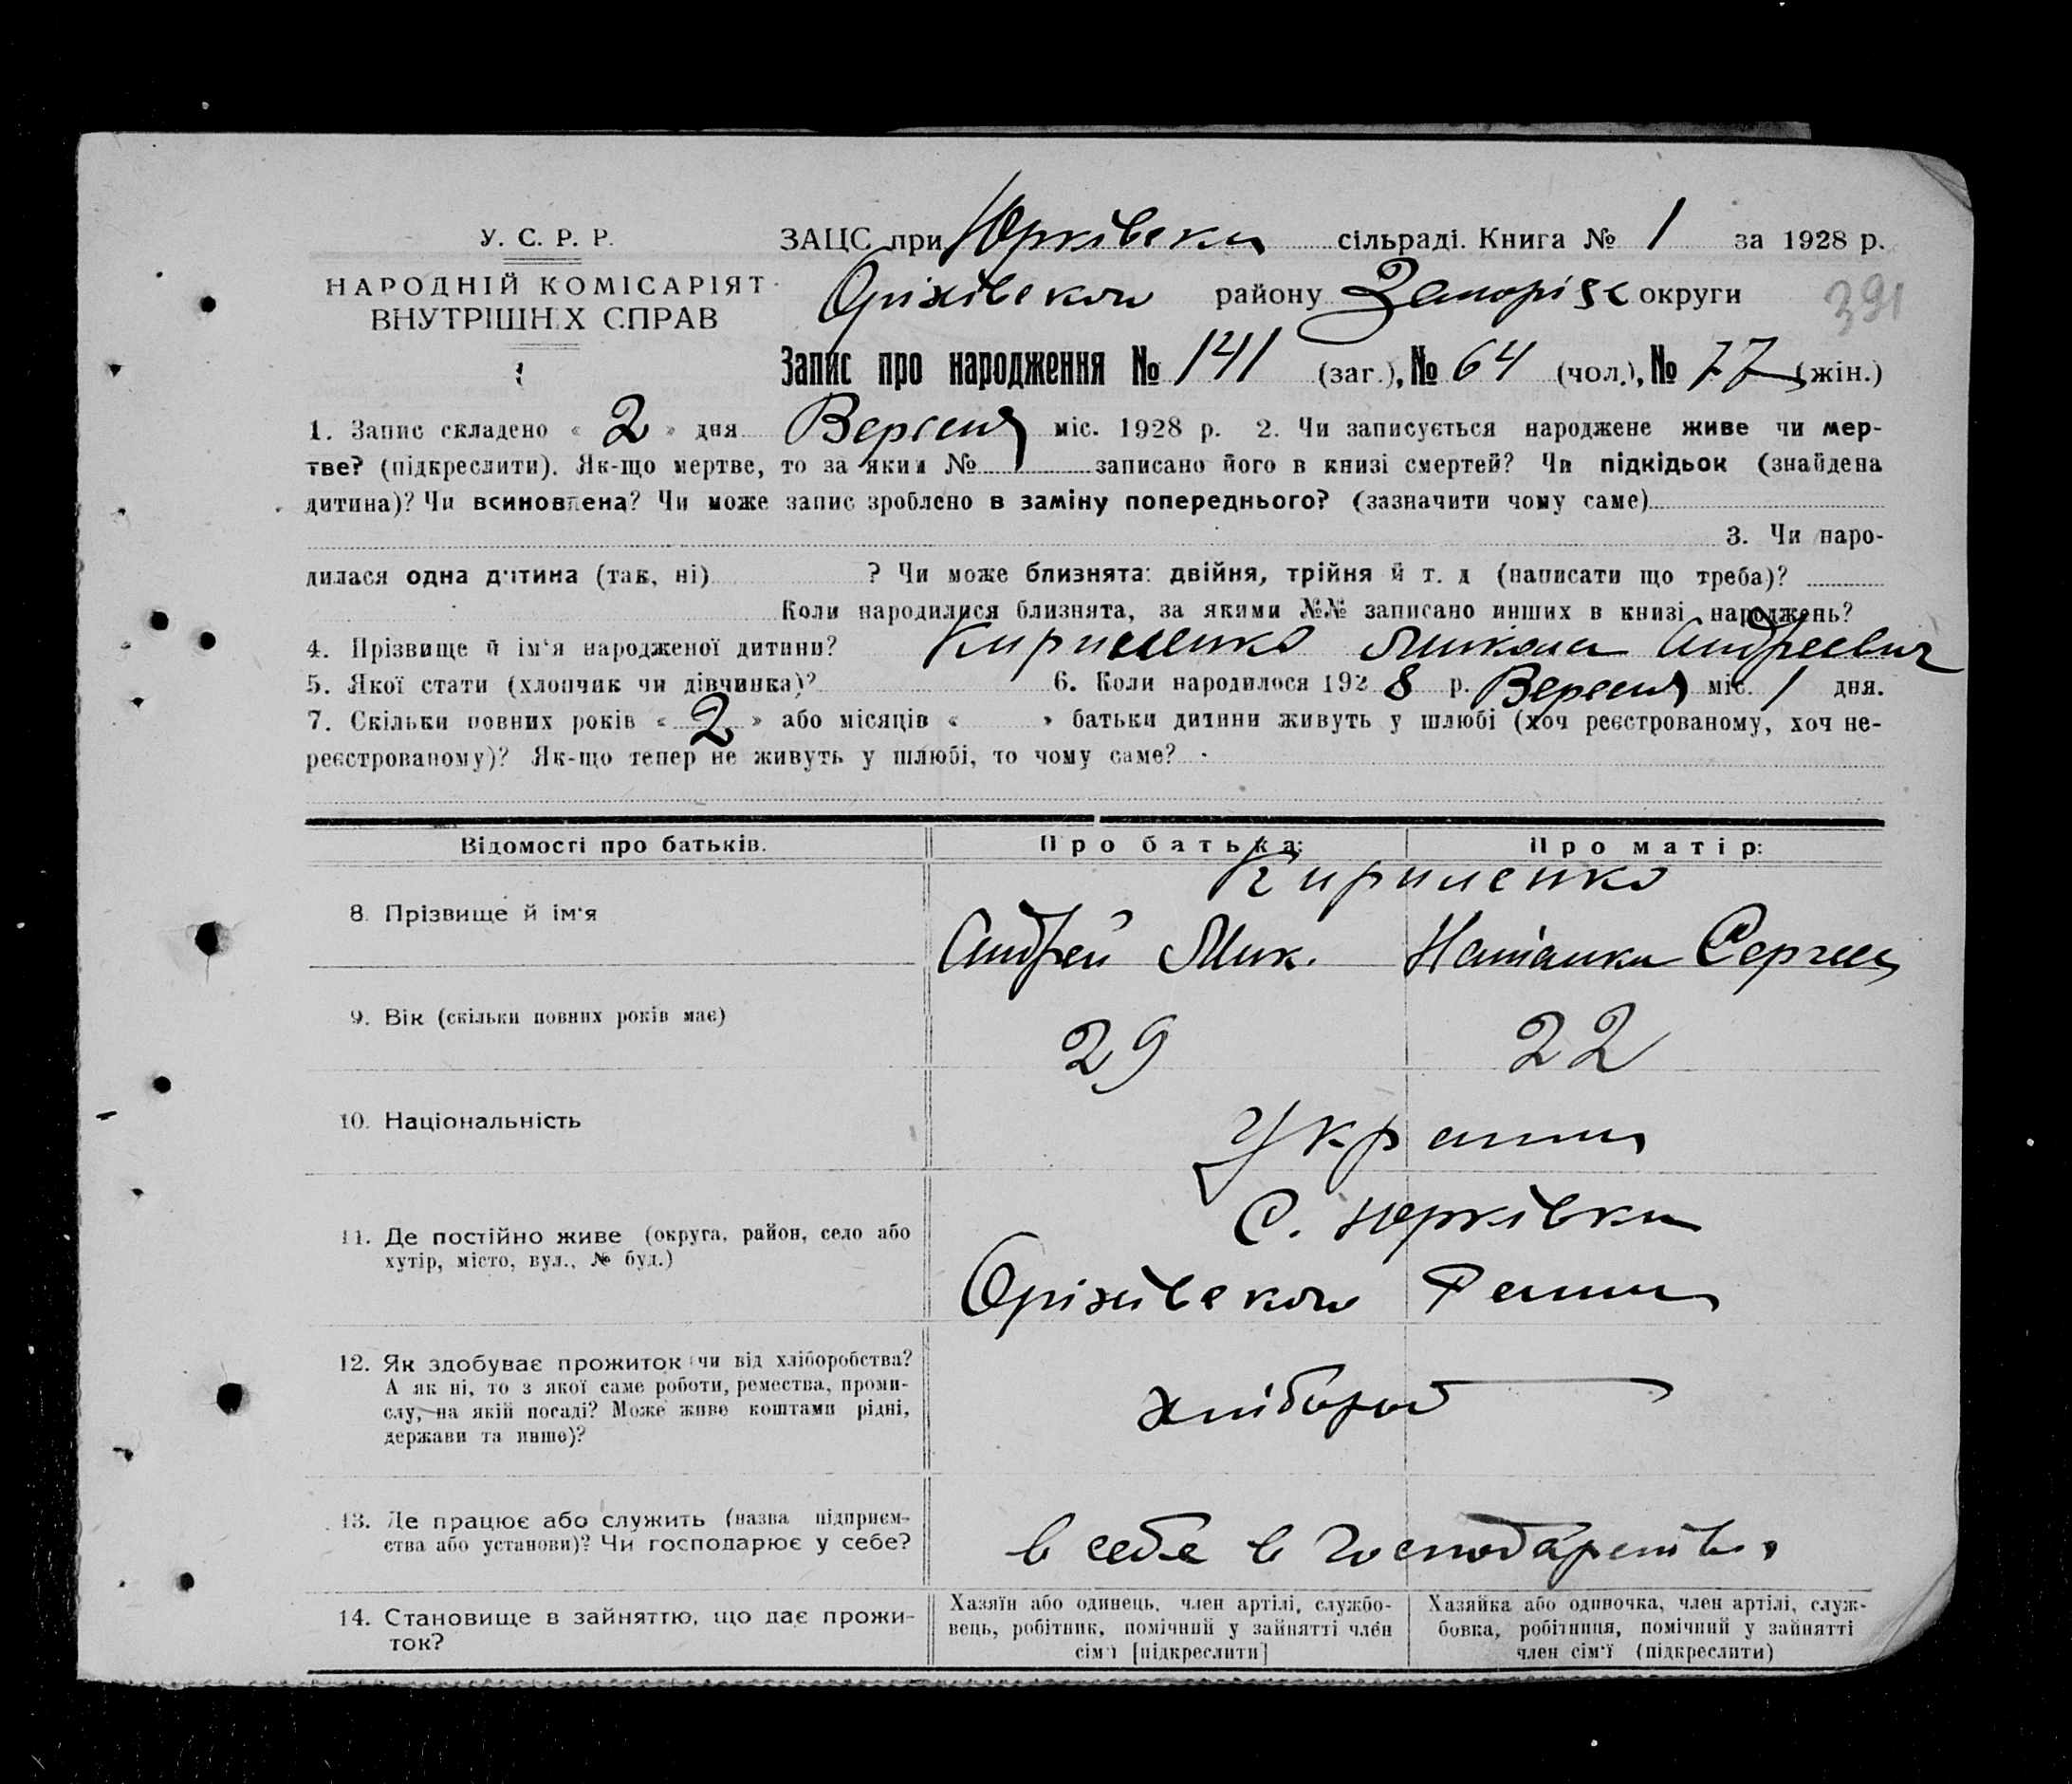 У. С. Р. Р.
НАРОДНІЙ КОМІСАРІЯТ
ВНУТРІШНІХ СПРАВ
ЗАЦС при Юрківски сільраді. Книга № 1 за 1928 р.
Оріхівском району Запорізс округи
391
Запис про народження № 141 (заг.), № 64 (чол.), № 77 (жін.)
1. Запис складено « 2 » дня Вересня міс. 1928 р. 2. Чи записується народжене живе чи мер-
тве? (підкреслити). Як-що мертве, то за яким № записано його в книзі смертей? Чи підкідьок (знайдена
дитина)? Чи всиновлена? Чи може запис зроблено в заміну попереднього? (зазначити чому саме)
3. Чи наро-
дилася одна дитина (так, ні) ? Чи може близнята: двійня, трійня й т. д (написати що треба)?
Коли народилися близнята, за якими №№ записано инших в книзі народжень?
4. Прізвище й ім'я народженої дитини? Кириленко Микола Андреевич
5. Якої стати (хлопчик чи дівчинка)? 6. Коли народилося 1928 р. Вересня міс. 1 дня.
7. Скільки повних років « 2 » або місяців « » батьки дитини живуть у шлюбі (хоч реєстрованому, хоч не-
реєстрованому)? Як-що тепер не живуть у шлюбі, то чому саме?
Відомості про батьків. Про батька: Про матір:
Кириленко
8. Прізвище й ім'я Андрей Мик. Наталка Сергее
9. Вік (скільки повних років має) 29 22
10. Національність Украинц
11. Де постійно живе (округа, район, село або
хутір, місто, вул., № буд.)
С. Юрківки
Оріхівском Району
12. Як здобуває прожиток чи від хліборобства?
А як ні, то з якої саме роботи, ремества, проми-
слу, на якій посаді? Може живе коштами рідні,
держави та инше)?
хлібороб
13. Де працює або служить (назва підприєм-
ства або установи)? Чи господарює у себе?
в себе в господарстві
14. Становище в зайняттю, що дає прожи-
ток?
Хазяїн або одинець, член артілі, службо-
вець, робітник, помічний у зайнятті член
сім'ї [підкреслити]
Хазяйка або одиночка, член артілі, служ-
бовка, робітниця, помічний у зайнятті
член сім'ї (підкреслити)